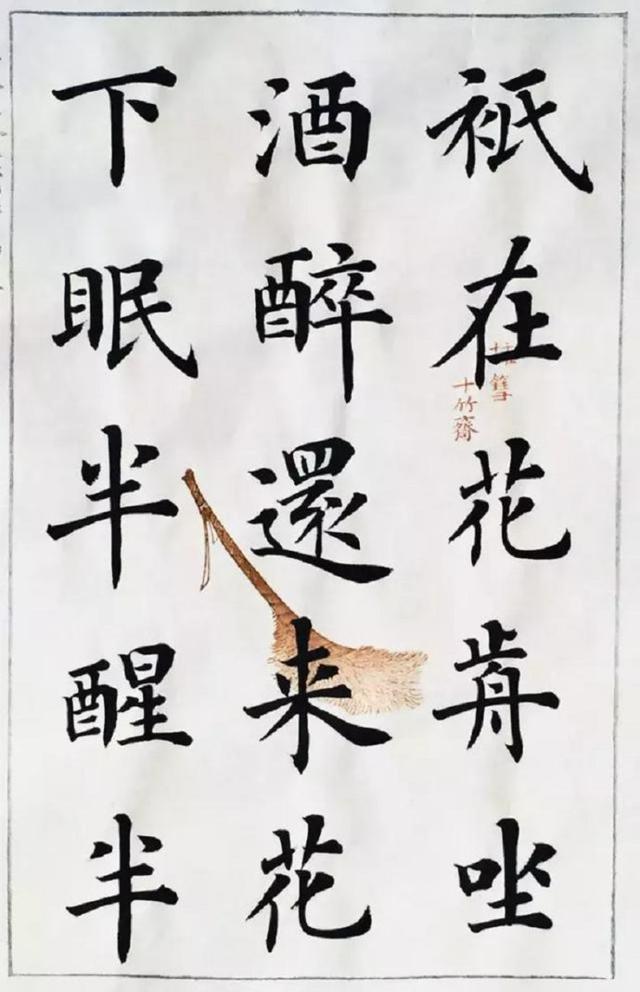 衹在花歬坐
酒醉還来花
下眠半醒半
十竹齋